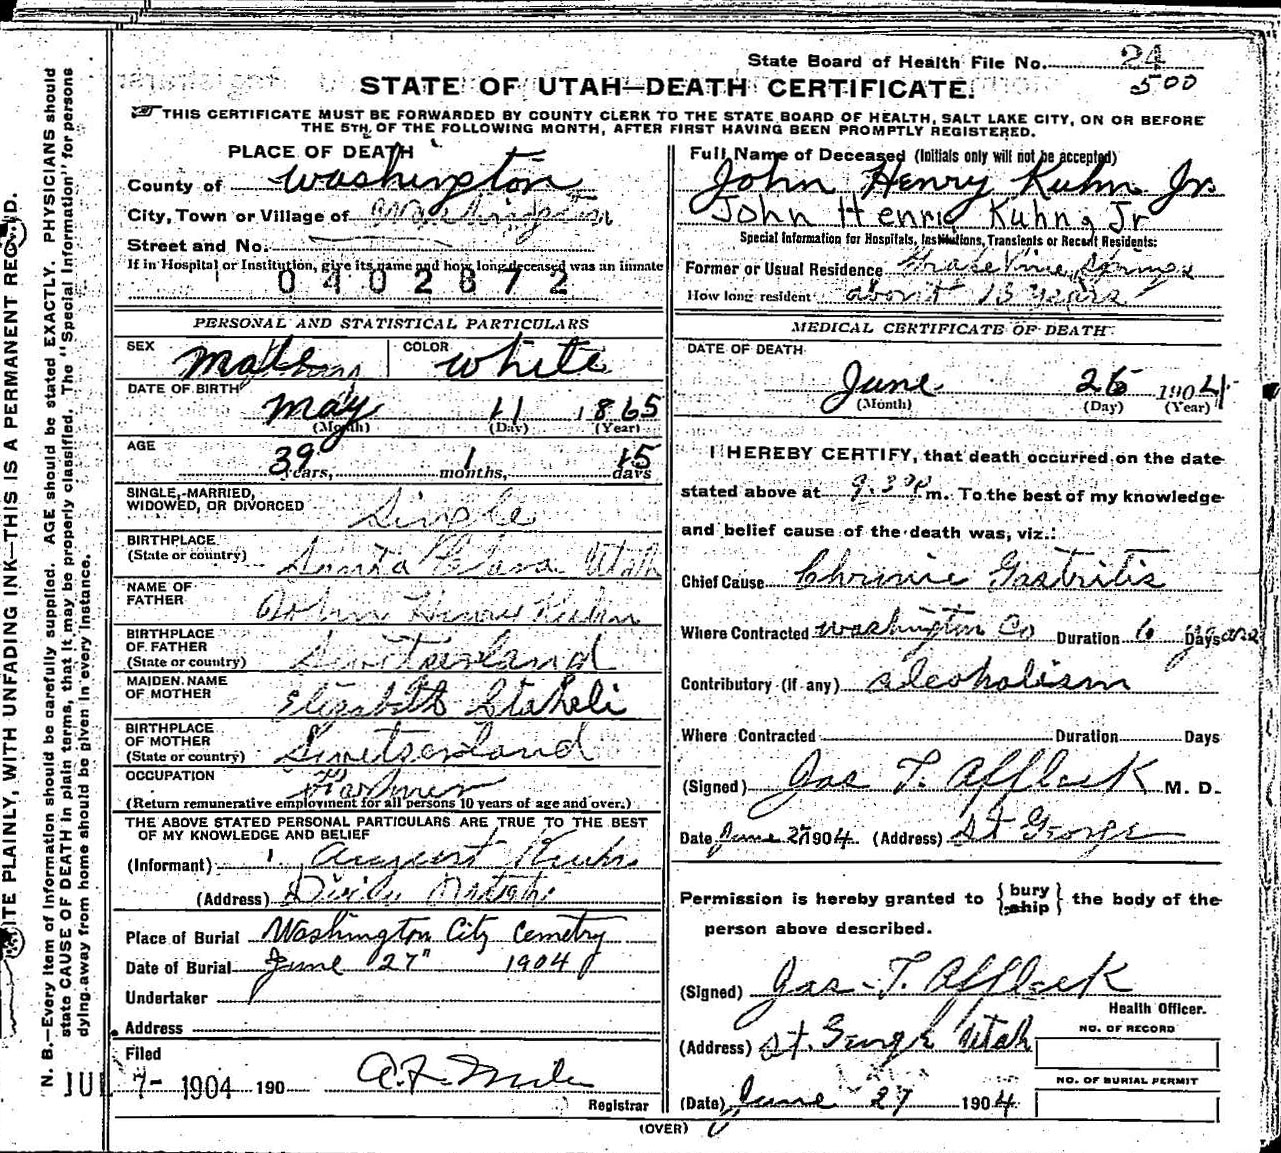 State Board of Health File No. 24
500
STATE OF UTAH—DEATH CERTIFICATE.
THIS CERTIFICATE MUST BE FORWARDED BY COUNTY CLERK TO THE STATE BOARD OF HEALTH, SALT LAKE CITY, ON OR BEFORE
THE 5TH OF THE FOLLOWING MONTH, AFTER FIRST HAVING BEEN PROMPTLY REGISTERED.
PLACE OF DEATH
County of Washington
City, Town or Village of Washington
Street and No.
If in Hospital or Institution, give its name and how long deceased was an inmate
0402672
PERSONAL AND STATISTICAL PARTICULARS
SEX Male COLOR White
DATE OF BIRTH
May 11 1865
(Month) (Day) (Year)
AGE
39 years, 1 months, 15 days
SINGLE, MARRIED,
WIDOWED, OR DIVORCED Single
BIRTHPLACE
(State or country) Santa Clara Utah
NAME OF
FATHER John Henry Kuhn
BIRTHPLACE
OF FATHER
(State or country) Switzerland
MAIDEN NAME
OF MOTHER Elizabeth Staheli
BIRTHPLACE
OF MOTHER
(State or country) Switzerland
OCCUPATION Farmer
(Return remunerative employment for all persons 10 years of age and over.)
THE ABOVE STATED PERSONAL PARTICULARS ARE TRUE TO THE BEST
OF MY KNOWLEDGE AND BELIEF
(Informant) August Kuhn
(Address)
Place of Burial Washington City Cemetry
Date of Burial June 27" 1904
Undertaker
Address
Filed
JUL 7- 1904 190
Registrar
Full Name of Deceased (Initials only will not be accepted)
John Henry Kuhn Jr.
John Henry Kuhn, Jr
Special Information for Hospitals, Institutions, Transients or Recent Residents:
Former or Usual Residence Grape Vine Springs
How long resident about 13 years
MEDICAL CERTIFICATE OF DEATH
DATE OF DEATH
June 26 1904
(Month) (Day) (Year)
I HEREBY CERTIFY, that death occurred on the date
stated above at 9.30 P m. To the best of my knowledge
and belief cause of the death was, viz.:
Chief Cause Chronic Gastritis
Where Contracted Washington Co Duration 6 Days years
Contributory (if any) alcoholism
Where Contracted Duration Days
(Signed) Jas T. Affleck M. D.
Date June 27 1904 (Address) St George
Permission is hereby granted to {bury
ship} the body of the
person above described.
(Signed) Jas. T. Affleck
Health Officer.
(Address) St. George Utah
NO. OF RECORD
NO. OF BURIAL PERMIT
(Date) June 27 1904
(OVER)
N. B.—Every item of information should be carefully supplied. AGE should be stated EXACTLY. PHYSICIANS should
state CAUSE OF DEATH in plain terms, that it may be properly classified. The "Special Information" for persons
dying away from home should be given in every instance.
PLAINLY, WITH UNFADING INK—THIS IS A PERMANENT RECORD.